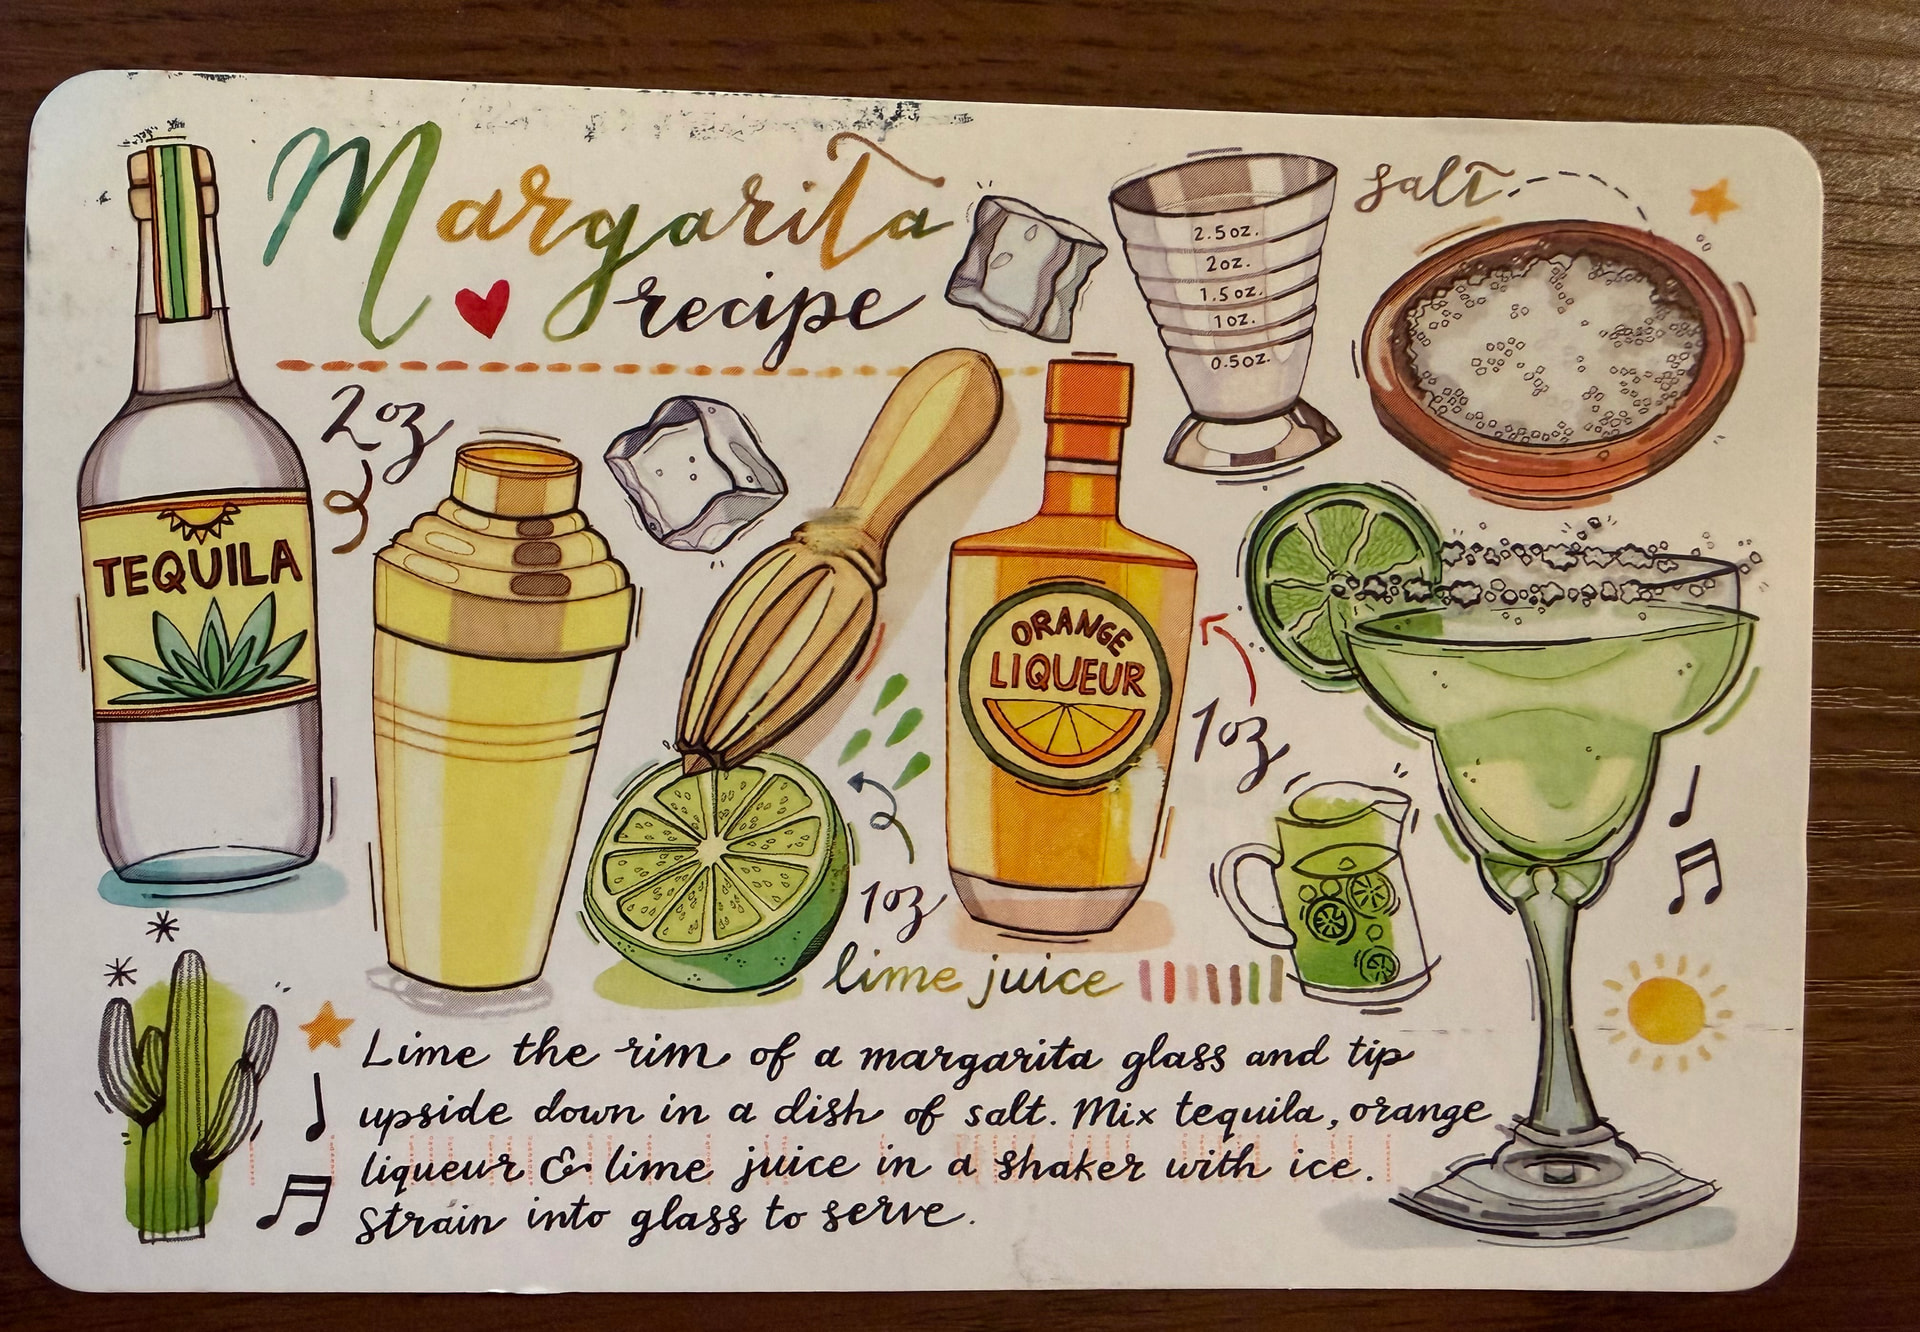 Margarita
recipe
salt
2.5oz.
2oz.
1.5oz.
1oz.
0.5oz.
2oz
TEQUILA
ORANGE
LIQUEUR
1oz
1oz
lime juice
Lime the rim of a margarita glass and tip
upside down in a dish of salt. Mix tequila, orange
liqueur & lime juice in a shaker with ice.
Strain into glass to serve.